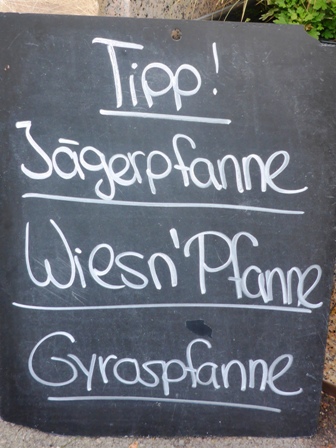 Tipp!
Jägerpfanne
Wiesn'Pfanne
Gyrospfanne